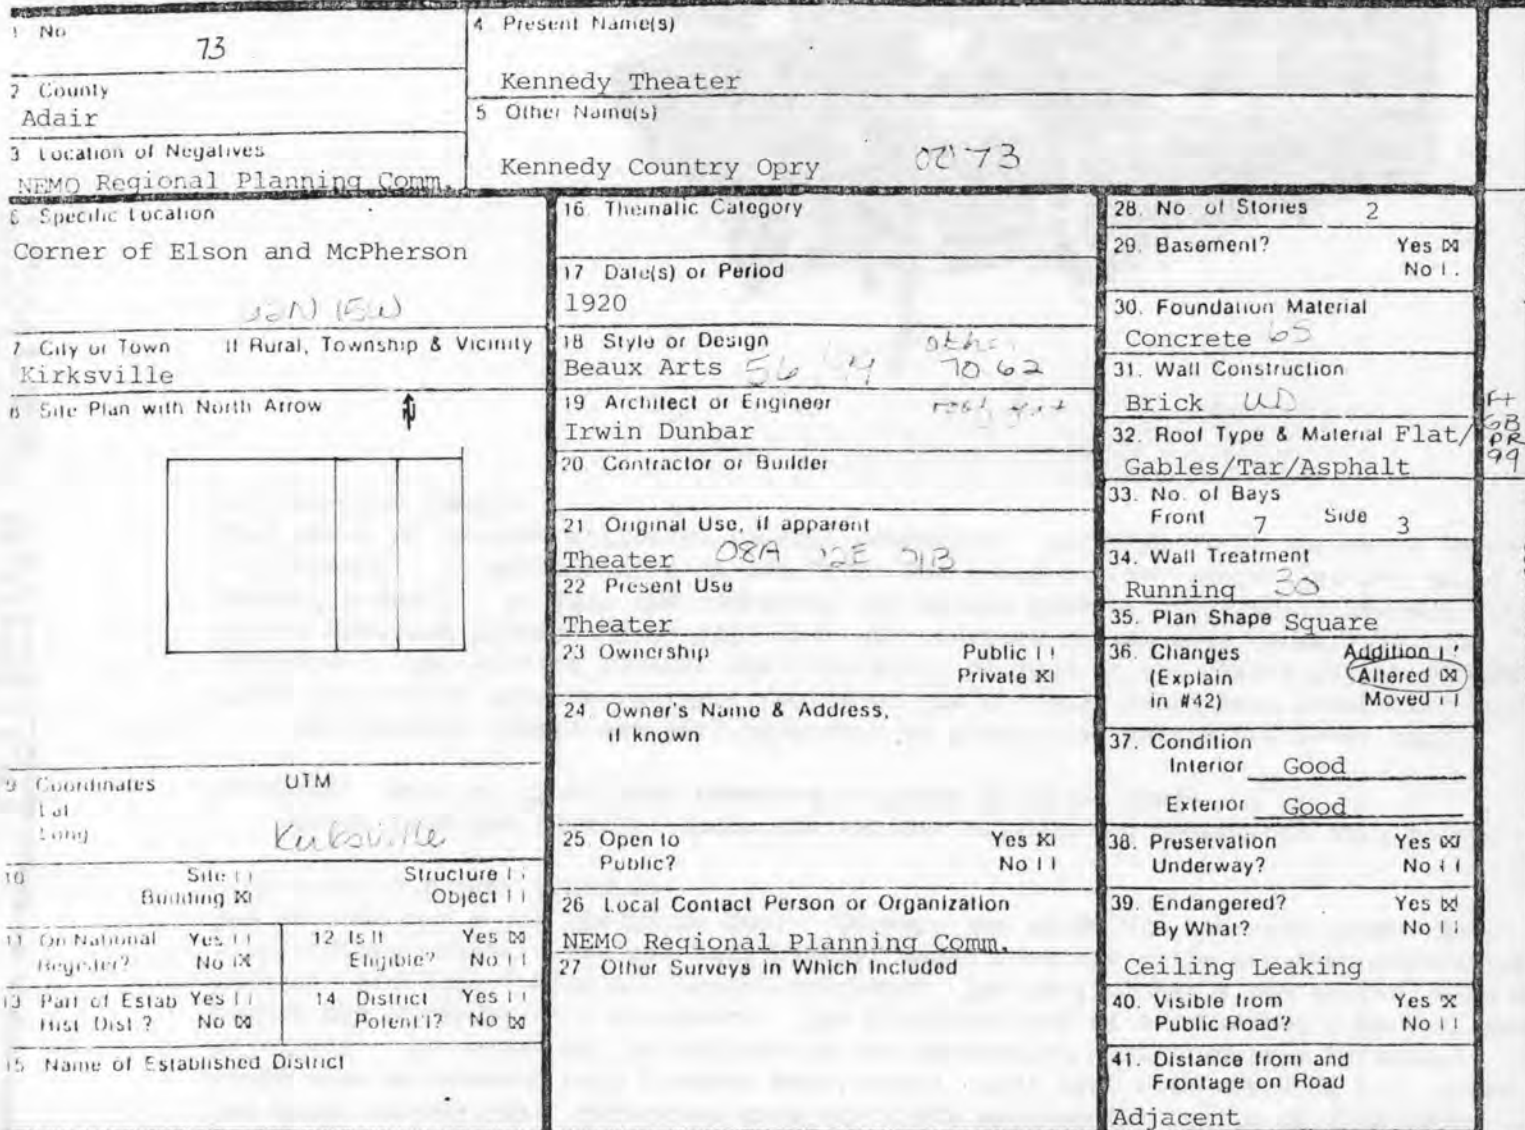 1 No
73
4 Present Name(s)
Kennedy Theater
2 County
Adair
5 Other Name(s)
Kennedy Country Opry
3 Location of Negatives
NEMO Regional Planning Comm.
6 Specific Location
Corner of Elson and McPherson
7 City or Town If Rural, Township & Vicinity
Kirksville
8 Site Plan with North Arrow
N
9 Coordinates UTM
Lat
Long
Kirksville
10 Site Structure
Building X Object
11 On National Register? Yes No X
12 Is It Eligible? Yes X No
13 Part of Estab Hist Dist? Yes No X
14 District Potent'l? Yes No X
15 Name of Established District
16. Thematic Category
17 Date(s) or Period
1920
18 Style or Design
Beaux Arts 70 62
19 Architect or Engineer
Irwin Dunbar
20. Contractor or Builder
21. Original Use, if apparent
Theater 08A 22E
22 Present Use
Theater
23 Ownership Public
Private X
24. Owner's Name & Address,
if known
25. Open to Yes X
Public? No
26. Local Contact Person or Organization
NEMO Regional Planning Comm.
27 Other Surveys in Which Included
28. No. of Stories 2
29. Basement? Yes X
No
30. Foundation Material
Concrete 65
31. Wall Construction
Brick UD
32. Roof Type & Material Flat/
Gables/Tar/Asphalt
Ft
GB
PR
99
33. No. of Bays
Front 7 Side 3
34. Wall Treatment
Running 30
35. Plan Shape Square
36. Changes Addition
(Explain Altered X
in #42) Moved
37. Condition
Interior Good
Exterior Good
38. Preservation Yes X
Underway? No
39. Endangered? Yes X
By What? No
Ceiling Leaking
40. Visible from Yes X
Public Road? No
41. Distance from and
Frontage on Road
Adjacent